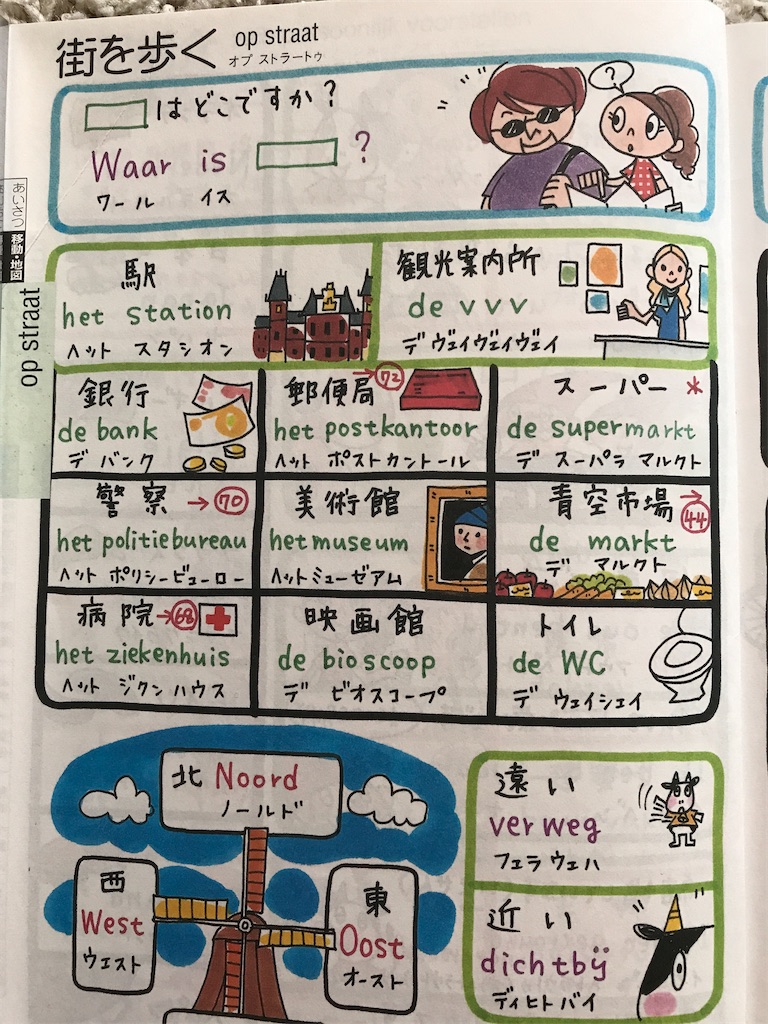 街を歩く op straat
オプ ストラートゥ
はどこですか?
Waar is ?
ワール イス
?
あいさつ
移動・地図
op straat
駅
het station
ヘット スタシオン
観光案内所
de vvv
デ ヴェイヴェイヴェイ
銀行
de bank
デ バンク
郵便局 →72
het postkantoor
ヘット ポストカントール
スーパー *
de supermarkt
デ スーパラ マルクト
警察 →70
het politiebureau
ヘット ポリシービューロー
美術館
het museum
ヘットミューゼアム
青空市場 →44
de markt
デ マルクト
病院→68
het ziekenhuis
ヘット ジクンハウス
映画館
de bioscoop
デ ビオスコープ
トイレ
de WC
デ ウェイシェイ
北 Noord
ノールド
西
West
ウェスト
東
Oost
オースト
遠い
ver weg
フェラ ウェハ
近い
dichtbij
ディヒトバイ